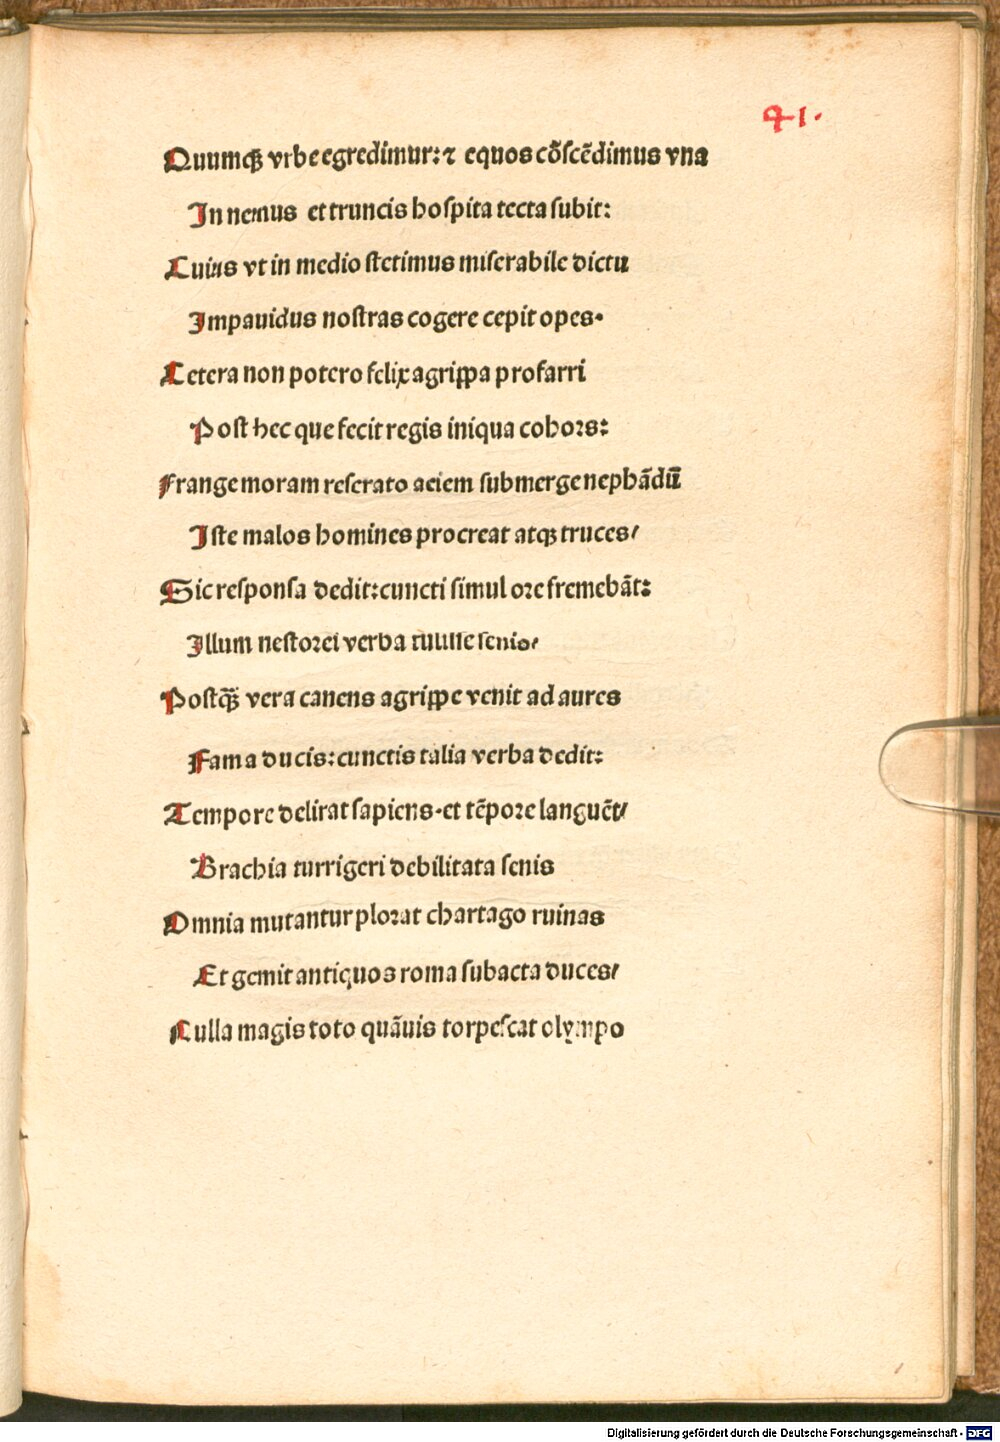 41.
Quumqꝫ vrbe egredimur: ⁊ equos cõscẽdimus vna
In nemus et truncis hospita tecta subit:
Cuius vt in medio stetimus miserabile dictu
Impauidus nostras cogere cepit opes.
Cetera non potero felix agrippa profarri
Post hec que fecit regis iniqua cohors:
Frange moram reserato aciem submerge nephãdũ
Iste malos homines procreat atqꝫ truces/
Sic responsa dedit: cuncti simul ore fremebãt:
Illum nestorei verba tulisse senis/
Postq̃ꝫ vera canens agrippe venit ad aures
Fama ducis: cunctis talia verba dedit:
Tempore delirat sapiens. et tẽpore languẽt/
Brachia turrigeri debilitata senis
Omnia mutantur plorat chartago ruinas
Et gemit antiquos roma subacta duces/
Culla magis toto quãuis torpescat olympo
Digitalisierung gefördert durch die Deutsche Forschungsgemeinschaft - DFG